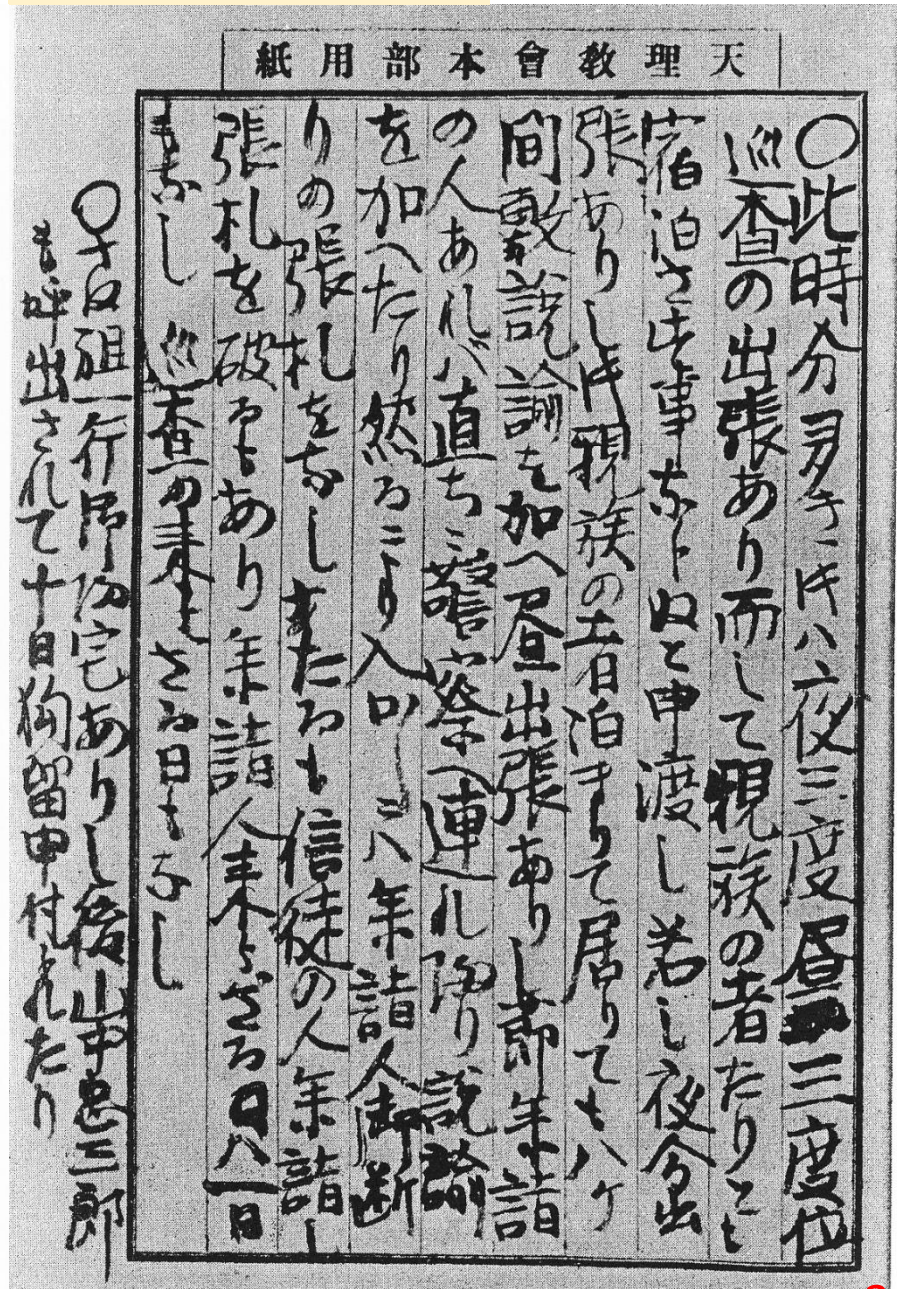 天理教會本部用紙
〇此時分多き时ハ六夜三度昼三度位
巡査の出張あり而して親族の者たりとも
宿泊さす事ならぬと申渡し若し夜分出
張ありし时親族の者泊まりて居りても八ケ
間敷説諭を加へ昼出張ありし節参詣
の人あれバ直ちニ警察へ連れ帰り説諭
を加へたり然るニより入口ニハ参詣人御断
りの張札をなし
たるも信徒の人参詣し
張札を破るもあり参詣人来らざる日ハ一日
もなし 巡査の来らざる日もなし
〇
教祖
行
宅ありし後山中忠三郎
も呼出されて十日拘留申付られたり